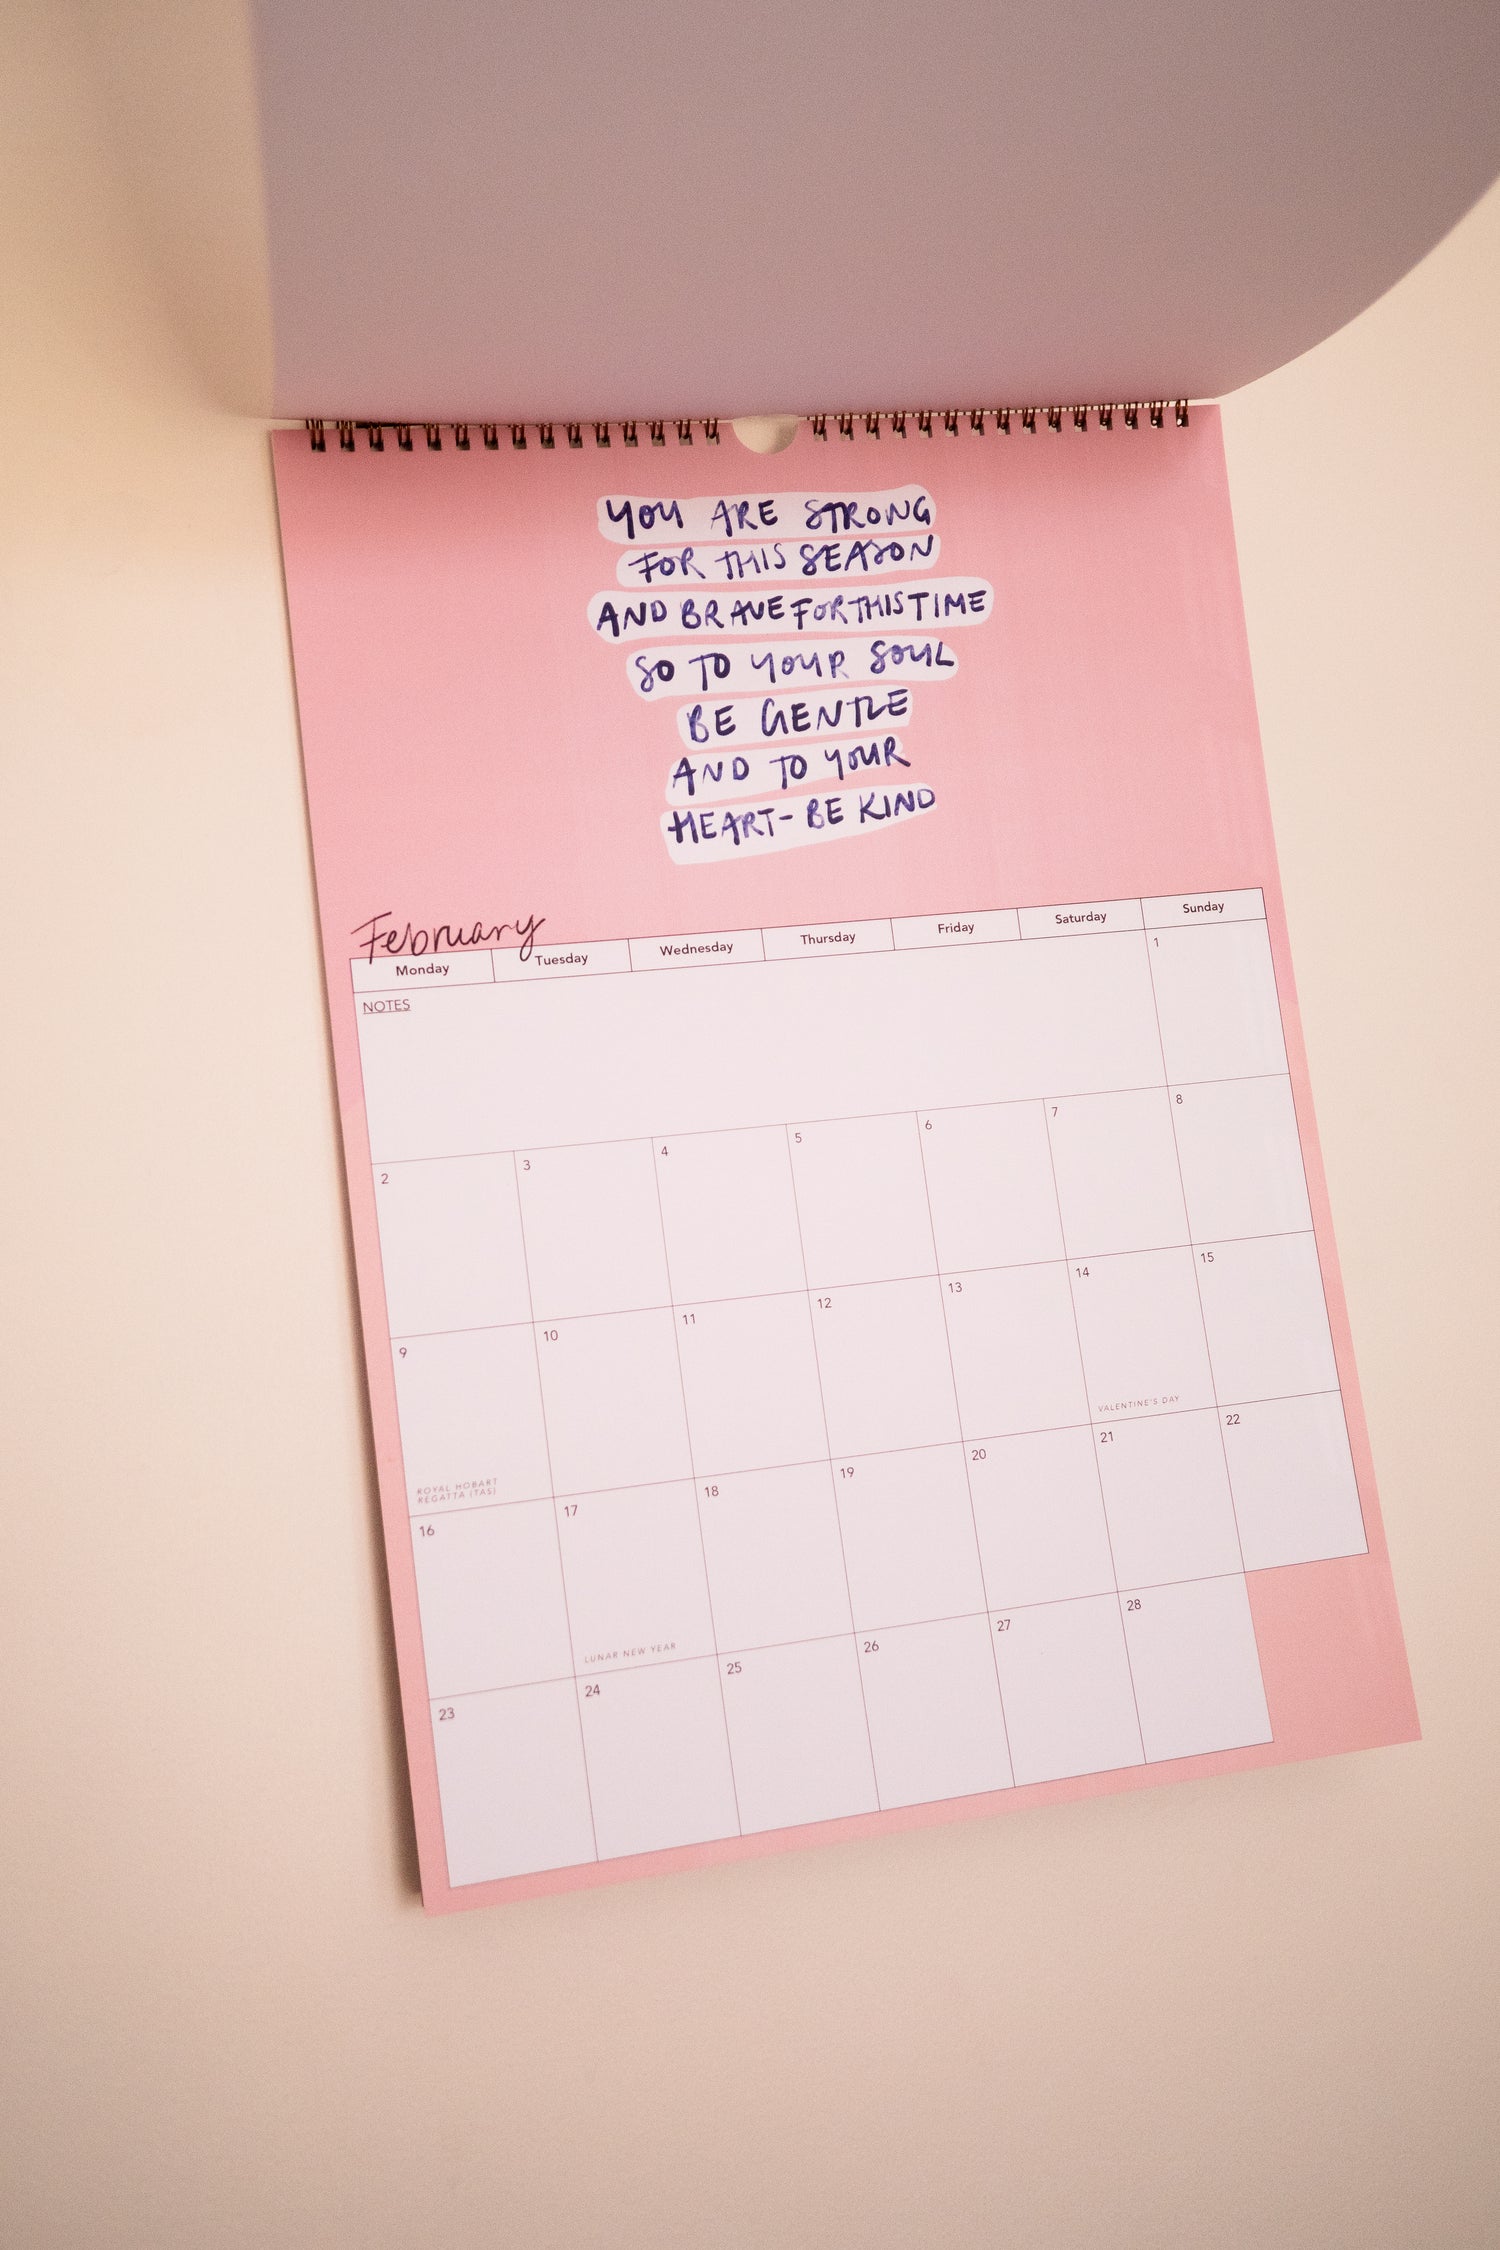 YOU ARE STRONG
FOR THIS SEASON
AND BRAVE FOR THIS TIME
SO TO YOUR SOUL
BE GENTLE
AND TO YOUR
HEART- BE KIND
February
Monday Tuesday Wednesday Thursday Friday Saturday Sunday
NOTES 1
2 3 4 5 6 7 8
9 10 11 12 13 14 15
ROYAL HOBART
REGATTA (TAS)
VALENTINE'S DAY
16 17 18 19 20 21 22
LUNAR NEW YEAR
23 24 25 26 27 28